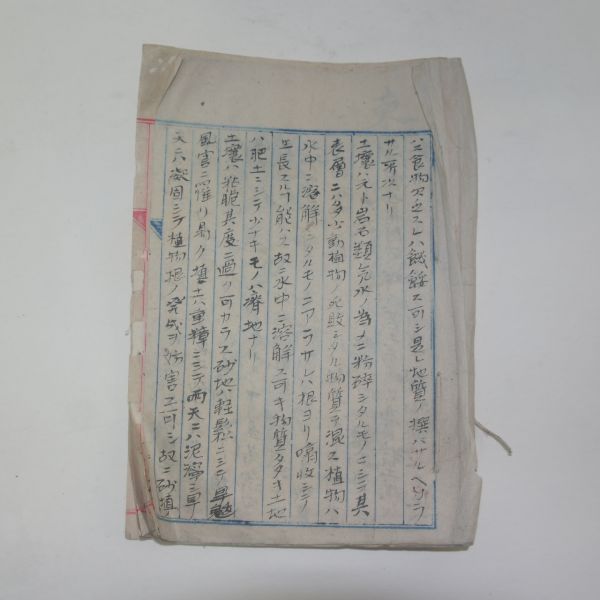 ハ主食物欠乏スレハ饑餒ス可シ是レ地質ノ撰ハサルヘカラ
サル所次ナリ
土壤ハ元ト岩石類ノ水ノ為メニ粉碎シタルモノニシテ其
表層ニハ多少動植物ノ死敗シタル物質ヲ混ス植物ハ
水中ニ溶解シタルモノニアラサレハ根ヨリ嗋收シテ
生長スルヿ能ハス故ニ水中ニ溶解ス可キ物質多キ土地
ハ肥土ニシテ少ナキモノハ瘠地ナリ
土壤ハ粘脆其度ニ過ク可カラス砂地ハ軽鬆ニシテ旱
風害ニ罹リ易ク埴土ハ重粘ニシテ雨天ニハ泥濘シ旱
天ニハ凝固シテ植物根ノ発成ヲ妨害ス可シ故ニ砂埴ノ